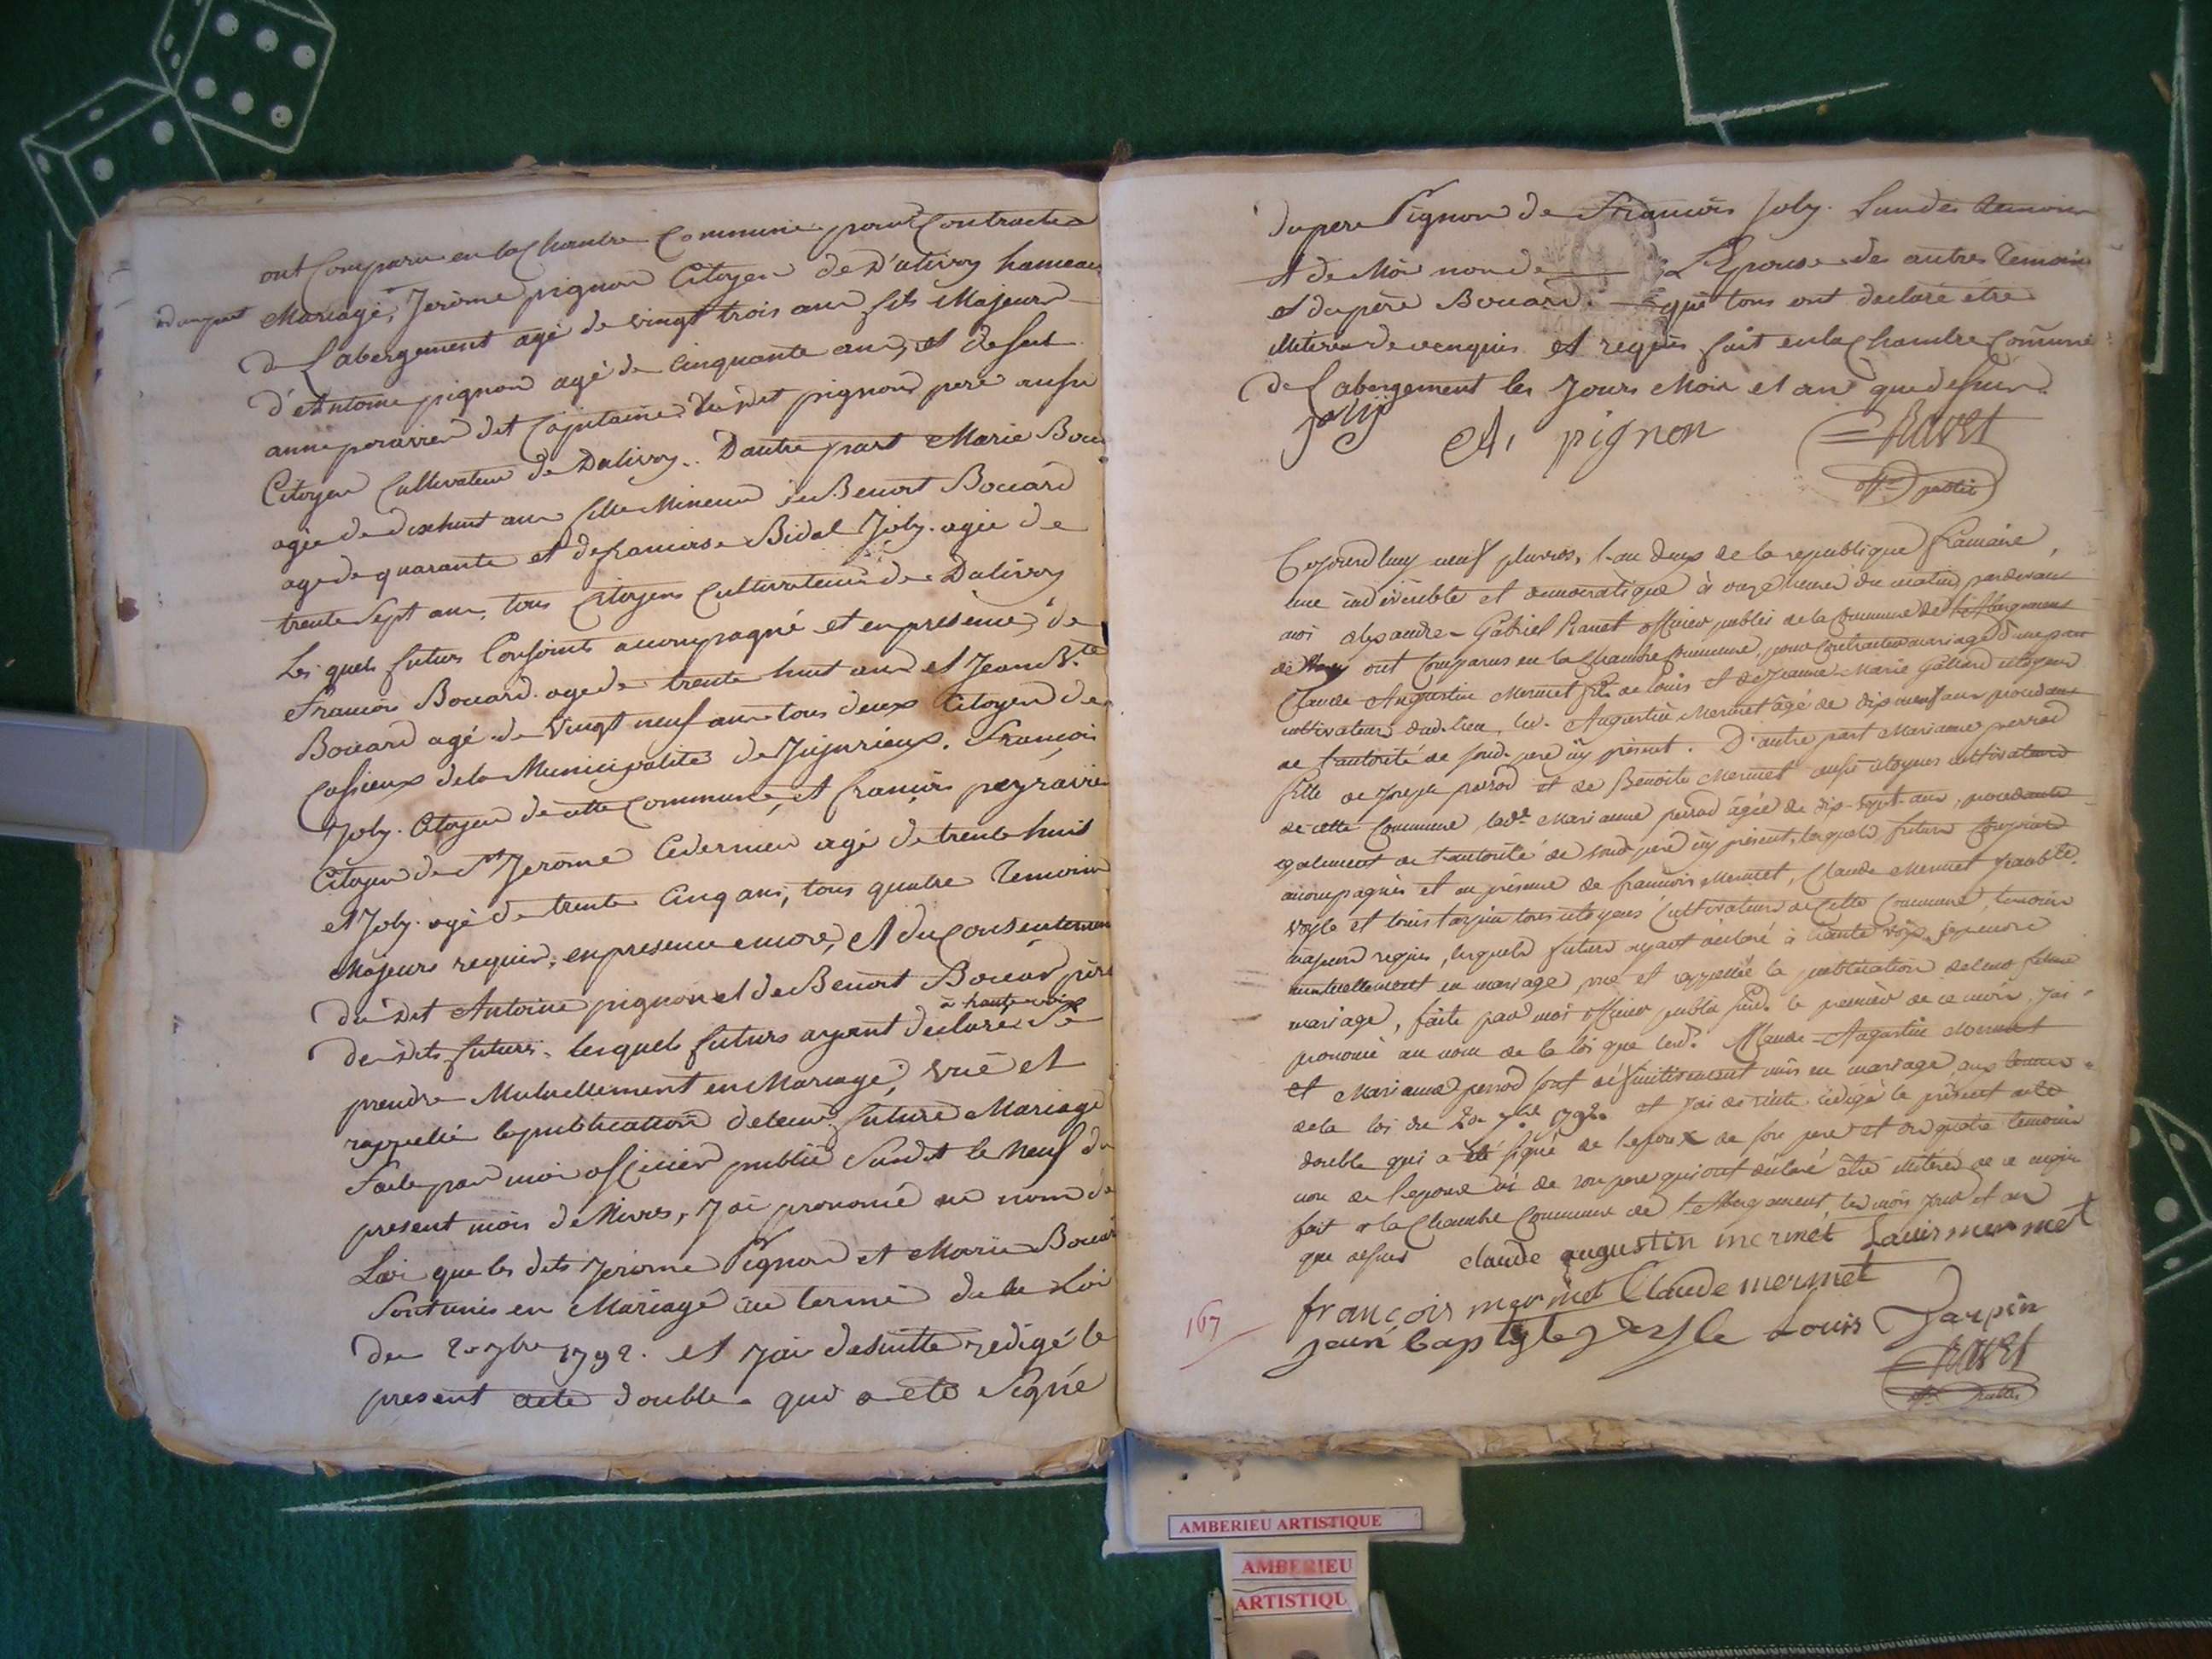 ont Comparu en la Chambre Commune pour Contracter
d'une part
Mariage, Jerôme pignon Citoyen de D'alivoy hameau
de L'abergement agé de vingt trois ans fils Majeur
d'Antoine pignon agé de Cinquante ans, et de feue
anne peravier dit Capitaine. Ledit pignon pere aussi
Citoyen Cultivateur de Dalivoy. D'autre part Marie Boua
agée de dixhuit ans fille Mineure de Benoit Bouard
agé de quarante et de francoise Bidal Joly. agée de
trente Sept ans, tous Citoyens Cultivateurs de Dalivoy
Les quels futurs Conjoints accompagné et en presence, de
Francois Bouard. agé de trente huit ans et Jean B.te
Bouard agé de Vingt neuf ans tous deux Citoyen de
Cossieux de la Municipalité de Jujurieux. Francois
Joly. Citoyen de cette Commune, et francois peyravie
Citoyen de St Jerôme Ledernier agé de trente huit
et Joly. agé de trente Cinq ans, tous quatre Temoins
Majeurs requis, en presence encore, et du Consentement
du dit Antoine pignon et de Benoit Bouard père
à haute voix
des dits futurs. lesquels futurs ayant declaré Se
prendre Mutuellement en Mariage, vue et
rappellée la publication de leur future Mariage
Faite par moi officier public Susdit le Neuf du
present mois de Nivos, J'ai prononcé au nom de
Loi que les dits Jerome Pignon et Marie Bouar
Sont unis en Mariage au terme de la Loi
du 20 7bre 1792. et J'ai desuitte redigé le
present acte double. qui a eté Signé
du pere Pignon de Francois Joly. L'un des temoins
et de Moi non de L'Epouse des autres Temoins
et du père Bouard. qui tous ont declaré être
illitéré de ce enquis et requis fait en la Chambre Commune
de L'abergement les Jours Mois et an que dessus.
joly
A, pignon
Ravet
off. public
Cejourdhuy neuf pluvios, l'an deux de la republique francaise,
une indivisible et democratique à onze heures du matin pardevant
moi alexandre-Gabriel Ravet officier public de la Commune de L'Abergement
de ont Comparus en la Chambre Commune, pour Contracter mariage d'une part
Claude Augustin Mermet fils de Louis et de Jeanne-Marie Galland citoyens
cultivateurs dud. lieu, led. Augustin Mermet agé de dix neuf ans procedant
de l'autorité de sond. pere icy présent. D'autre part Marianne perrod
fille de Joseph perrod et de Benoite Mermet aussi citoyens cultivateurs
de cette Commune, lade Marianne perrod agée de dix-sept ans, procedante
egalement de l'autorité de sond. pere icy présent, lesquels futurs Conjoints
accompagnés et en présence de francois Mermet, Claude Mermet Jean bte.
voyle et Louis tarpin tous citoyens Cultivateurs de Cette Commune, temoins
majeurs requis, lesquels futurs ayant declaré à haute voix se prendre
mutuellement en mariage, vue et rappellée la publication de leur futur
mariage, faite par moi officier public susd. le premier de ce mois, j'ai
prononcé au nom de la loi que led.s Claude-Augustin Mermet
et Marianne perrod sont définitivement unis en mariage, aux termes
de la loi du 20 7bre 1792. et j'ai de suite redigé le présent acte
double qui a été signé de l'epoux de son pere et des quatre temoins
non de l'epouse ni de son pere qui ont déclaré être illitéré de ce enquis
fait à la Chambre Commune de L'Abergement, les mois jour et an
que dessus claude augustin mermet Louis mermet
françois mermet Claude mermet
jean baptiste Louis Tarpin
167
Ravet
off. public
AMBERIEU ARTISTIQUE
AMBERIEU
ARTISTIQU